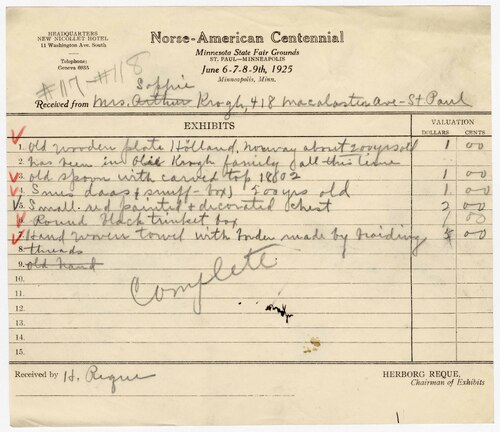 HEADQUARTERS
NEW NICOLLET HOTEL
11 Washington Ave. South
Telephone:
Geneva 6835
Norse-American Centennial
Minnesota State Fair Grounds
ST. PAUL—MINNEAPOLIS
June 6-7-8-9th, 1925
Minneapolis, Minn.
#117-#118
Sophie
Received from Mrs. Arthur Krogh, 418 Macalaster Ave - St Paul
EXHIBITS
VALUATION
DOLLARS CENTS
1. Old wooden plate Holland, Norway about 200 yrs old 1 00
2. has been in Ole Krogh family all this time
3. old spoon with carved top 1802 1. 00
4. Smus daas (snuff-box) 200 yrs old 1. 00
5. Small red painted & decorated chest 2 00
6. Round black trinket box 1 00
7. Hand woven towel with border made by braiding 00
8. threads
9. old hand
10.
Complete
11.
12.
13.
14.
15.
Received by H. Reque
HERBORG REQUE,
Chairman of Exhibits